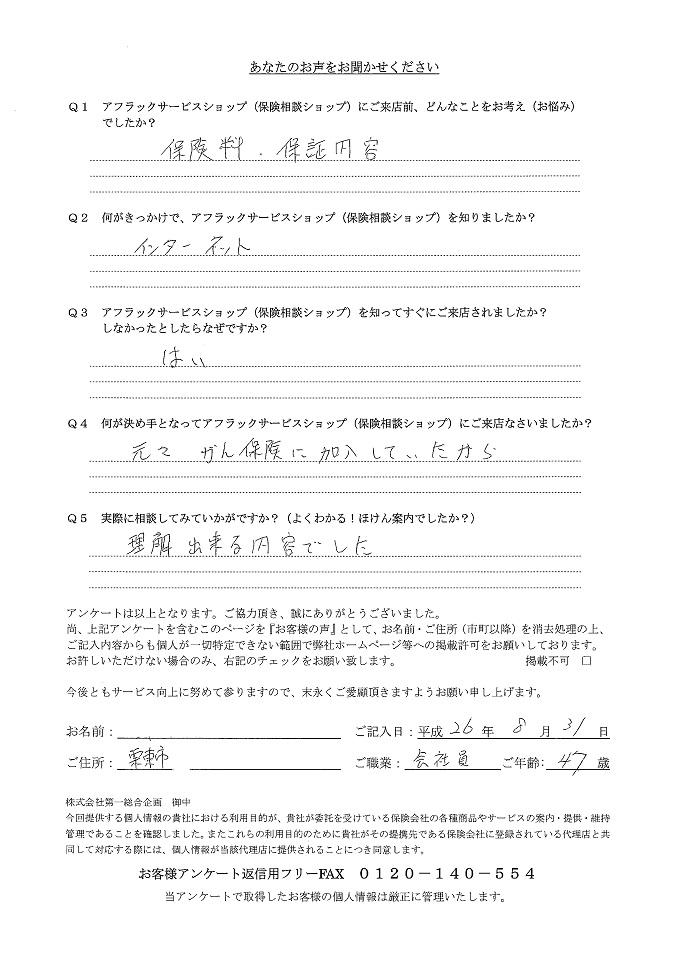 あなたのお声をお聞かせください
Q1 アフラックサービスショップ(保険相談ショップ)にご来店前、どんなことをお考え(お悩み)
でしたか?
保険料・保証内容
Q2 何がきっかけで、アフラックサービスショップ(保険相談ショップ)を知りましたか?
インターネット
Q3 アフラックサービスショップ(保険相談ショップ)を知ってすぐにご来店されましたか?
しなかったとしたらなぜですか?
はい
Q4 何が決め手となってアフラックサービスショップ(保険相談ショップ)にご来店なさいましたか?
元々 がん保険に加入していたから
Q5 実際に相談してみていかがですか?(よくわかる!ほけん案内でしたか?)
理解出来る内容でした
アンケートは以上となります。ご協力頂き、誠にありがとうございました。
尚、上記アンケートを含むこのページを『お客様の声』として、お名前・ご住所(市町以降)を消去処理の上、
ご記入内容からも個人が一切特定できない範囲で弊社ホームページ等への掲載許可をお願いしております。
お許しいただけない場合のみ、右記のチェックをお願い致します。 掲載不可 □
今後ともサービス向上に努めて参りますので、末永くご愛顧頂きますようお願い申し上げます。
お名前: ご記入日:平成 26 年 8 月 31 日
ご住所: 栗東市 ご職業: 会社員 ご年齢: 47 歳
株式会社第一総合企画 御中
今回提供する個人情報の貴社における利用目的が、貴社が委託を受けている保険会社の各種商品やサービスの案内・提供・維持
管理であることを確認しました。またこれらの利用目的のために貴社がその提携先である保険会社に登録されている代理店と共
同して対応する際には、個人情報が当該代理店に提供されることにつき同意します。
お客様アンケート返信用フリーFAX 0120-140-554
当アンケートで取得したお客様の個人情報は厳正に管理いたします。